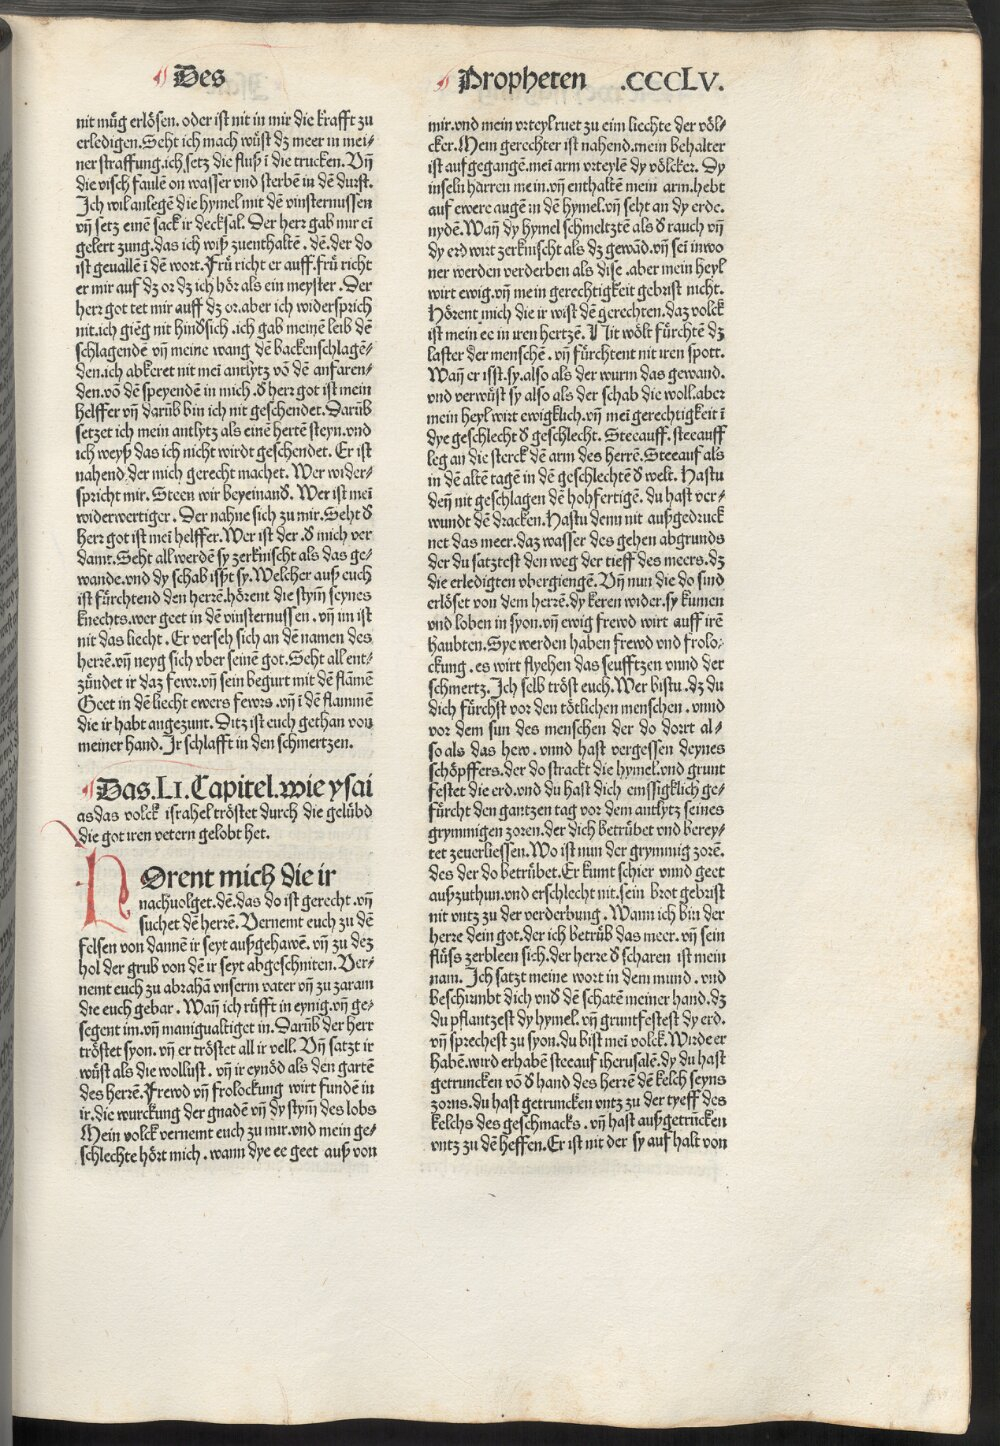 Des
Propheten .CCCLV.
nit müg erlösen. oder ist nit in mir die krafft zu
erledigen. Seht ich mach wüst dz meer in mei-
ner straffung. ich setz die fluß ī die trucken. Vn̄
die visch faulē on wasser vnd sterbē in dē durst.
Ich wil anlegē die hymel mit dē vinsternussen
vn̄ setz einē sack ir decksal. Der herr gab mir eī
gelert zung. das ich wiß zuenthaltē. dē. der do
ist geuallē ī dē wort. Frü richt er auff. frü richt
er mir auf dz or dz ich hör als ein meyster. Der
herr got tet mir auff dz or. aber ich widersprich
nit. ich gieng nit hindsich. ich gab meinē leib dē
schlagendē vn̄ meine wang dē backenschlagē-
den. ich abkeret nit mei antlytz vō dē anfaren-
den. vō dē speyendē in mich. d̄ herr got ist mein
helffer vn̄ darūb bin ich nit geschendet. Darūb
setzet ich mein antlytz als einē hertē steyn. vnd
ich weyß das ich nicht wirdt geschendet. Er ist
nahend der mich gerecht machet. Wer wider-
spricht mir. Steen wir beyeinand̄. Wer ist meī
widerwertiger. Der nahne sich zu mir. Seht d̄
herr got ist meī helffer. Wer ist der. d̄ mich ver
damt. Seht all werdē sy zerknischt als das ge-
wande. vnd dy schab isszt sy. Welcher auß euch
ist fürchtend den herrē. hörent die stym̄ seynes
knechts. wer geet in dē vinsternussen. vn̄ im ist
nit das liecht. Er verseh sich an dē namen des
herrē. vn̄ neyg sich vber seinē got. Seht all ent-
zündet ir daz fewr. vn̄ sein begurt mit dē flāmē
Geet in dē liecht ewers fewrs. vn̄ ī dē flammē
die ir habt angezunt. Ditz ist euch gethan von
meiner hand. Ir schlafft in den schmertzen.
Das. LI. Capitel. wie ysai
as das volck israhel tröstet durch die gelübd
die got iren vetern gelobt het.
HOrent mich die ir
nachuolget. dē. das do ist gerecht. vn̄
suchet dē herrē. Vernemt euch zu dē
felsen von dannē ir seyt außgehawē. vn̄ zu dez
hol der grub von dē ir seyt abgeschniten. Ver-
nemt euch zu abrahā vnserm vater vn̄ zu zaram
die euch gebar. Wan̄ ich rüfft in eynig. vn̄ ge-
segent im. vn̄ manigualtiget in. Darūb der herr
tröstet syon. vn̄ er tröstet all ir vell. Vn̄ satzt ir
wüst als die wollust. vn̄ ir eynöd als den gartē
des herrē. Frewd vn̄ frolockung wirt fundē in
ir. die wurckung der gnadē vn̄ dy stym̄ des lobs
Mein volck vernemt euch zu mir. vnd mein ge-
schlechte hört mich. wann dye ee geet auß von
mir. vnd mein vrteyl ruet zu eim liechte der völ-
cker. Mein gerechter ist nahend. mein behalter
ist aufgegangē. mei arm vrteylē dy völcker. Dy
inseln harren mein. vn̄ enthaltē mein arm. hebt
auf ewere augē in dē hymel. vn̄ seht an dy erde.
nydē. Wan̄ dy hymel schmeltztē als d̄ rauch vn̄
dy erd wirt zerknischt als dz gewād. vn̄ sei inwo
ner werden verderben als dise. aber mein heyl
wirt ewig. vn̄ mein gerechtigkeit gebrist nicht.
Hörent mich die ir wist dē gerechten. daz volck
ist mein ee in iren hertzē. Nit wölt fürchtē dz
laster der menschē. vn̄ fürchtent nit iren spott.
Wan̄ er isst. sy. also als der wurm das gewand.
vnd verwüst sy also als der schab die woll. aber
mein heyl wirt ewigklich. vn̄ mei gerechtigkeit ī
dye geschlecht d̄ geschlecht. Steeauff. steeauff
leg an die sterck dē arm des herrē. Steeauf als
in dē altē tagē in dē geschlechtē d̄ welt. Hastu
den̄ nit geschlagen dē hohfertigē. du hast ver-
wundt dē dracken. Hastu denn nit außgedruck
net das meer. daz wasser des gehen abgrunds
der du satztest den weg der tieff des meers. dz
die erledigten vbergiengē. Vn̄ nun die do sind
erlöset von dem herrē. dy keren wider. sy kumen
vnd loben in syon. vn̄ ewig frewd wirt auff irē
haubten. Sye werden haben frewd vnd frolo-
ckung. es wirt flyehen das seufftzen vnnd der
schmertz. Ich selb tröst euch. Wer bistu. dz du
dich fürchst vor den tötlichen menschen. vnnd
vor dem sun des menschen der do dort al-
so als das hew. vnnd hast vergessen deynes
schöpffers. der do strackt die hymel. vnd grunt
festet die erd. vnd du hast dich emssigklich ge-
fürcht den gantzen tag vor dem antlytz seines
grymmigen zoren. der dich betrübet vnd berey-
tet zeuerliessen. Wo ist nun der grymmig zorē.
des der do betrübet. Er kumt schier vnnd geet
außzuthun. vnd erschlecht nit. sein brot gebrist
nit vntz zu der verderbung. Wann ich bin der
herre dein got. der ich betrüb das meer. vn̄ sein
flüss zerbleen sich. der herre d̄ scharen ist mein
nam. Ich satzt meine wort in dem mund. vnd
beschirmbt dich vnd̄ dē schatē meiner hand. dz
du pflantzest dy hymel. vn̄ gruntfestest dy erd.
vn̄ sprechest zu syon. du bist mei volck. Wirde er
habē. wird erhabē steeauf iherusalē. dy du hast
getruncken vō d̄ hand des herrē dē kelch seyns
zorns. du hast getruncken vntz zu der tyeff des
kelchs des geschmacks. vn̄ hast außgetrūcken
vntz zu dē heffen. Er ist nit der sy auf halt von